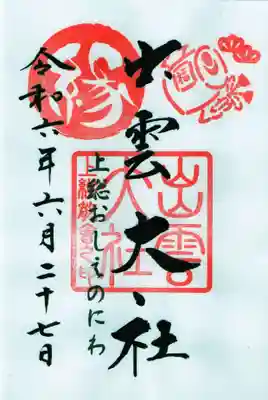 出雲大社
上総おしえのにわ
令和六年六月二十七日
縁
出雲
大社